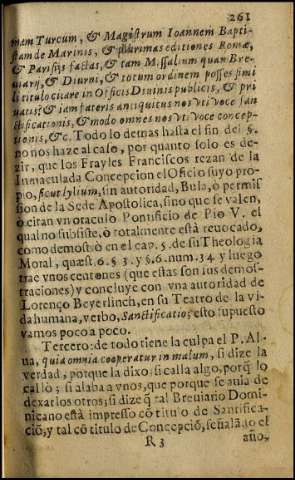 261
nam Turcum, & Magistrum Ioannem Bapti-
stam de Marinis, & plurimas editiones Romæ,
& Parisijs factas, & tam Missalium quam Bre-
uiarij, & Diurni, & totum ordinem posses simi
li titulo citare in Officijs Diuinis publicis, & pri
uatis? & iam fateris antiquitus nos vti voce San
ctificationis, & modo omnes nos vti voce concep-
tionis, &c. Todo lo demas hasta el fin del §.
no nos haze al caso, por quanto solo es de-
zir, que los Frayles Franciscos rezan de la
Inmaculada Concepcion el Oficio suyo pro-
pio, sicut lylium, sin autoridad, Bula, ò permis-
sion de la Sede Apostolica, sino que se valen,
ò citan vn otaculo Pontificio de Pio V. el
qual no subsiste, ò totalmente està reuocado,
como demostrò en el cap. 5. de su Theologia
Moral, quæst. 6. §. 3. y §. 6. num. 34. y luego
trae vnos centones (que estas son sus demos-
traciones) y concluye con vna autoridad de
Lorenço Beyerlinch, en su Teatro de la vi-
da humana, verbo, Sanctificatio; esto supuesto
vamos poco a poco.
Tercero: de todo tiene la culpa el P. Al-
ua, quia omnia cooperatur in malum, si dize la
verdad, porque la dixo; si calla algo, porq̃ lo
callò; si alaba a vnos, que porque se auia de
dexar los otros; si dize q̃ tal Breuiario Domi-
nicano està impresso cõ titulo de Santifica-
ciõ, y tal cõ titulo de Concepciõ, señalãdo el
R 3
año,